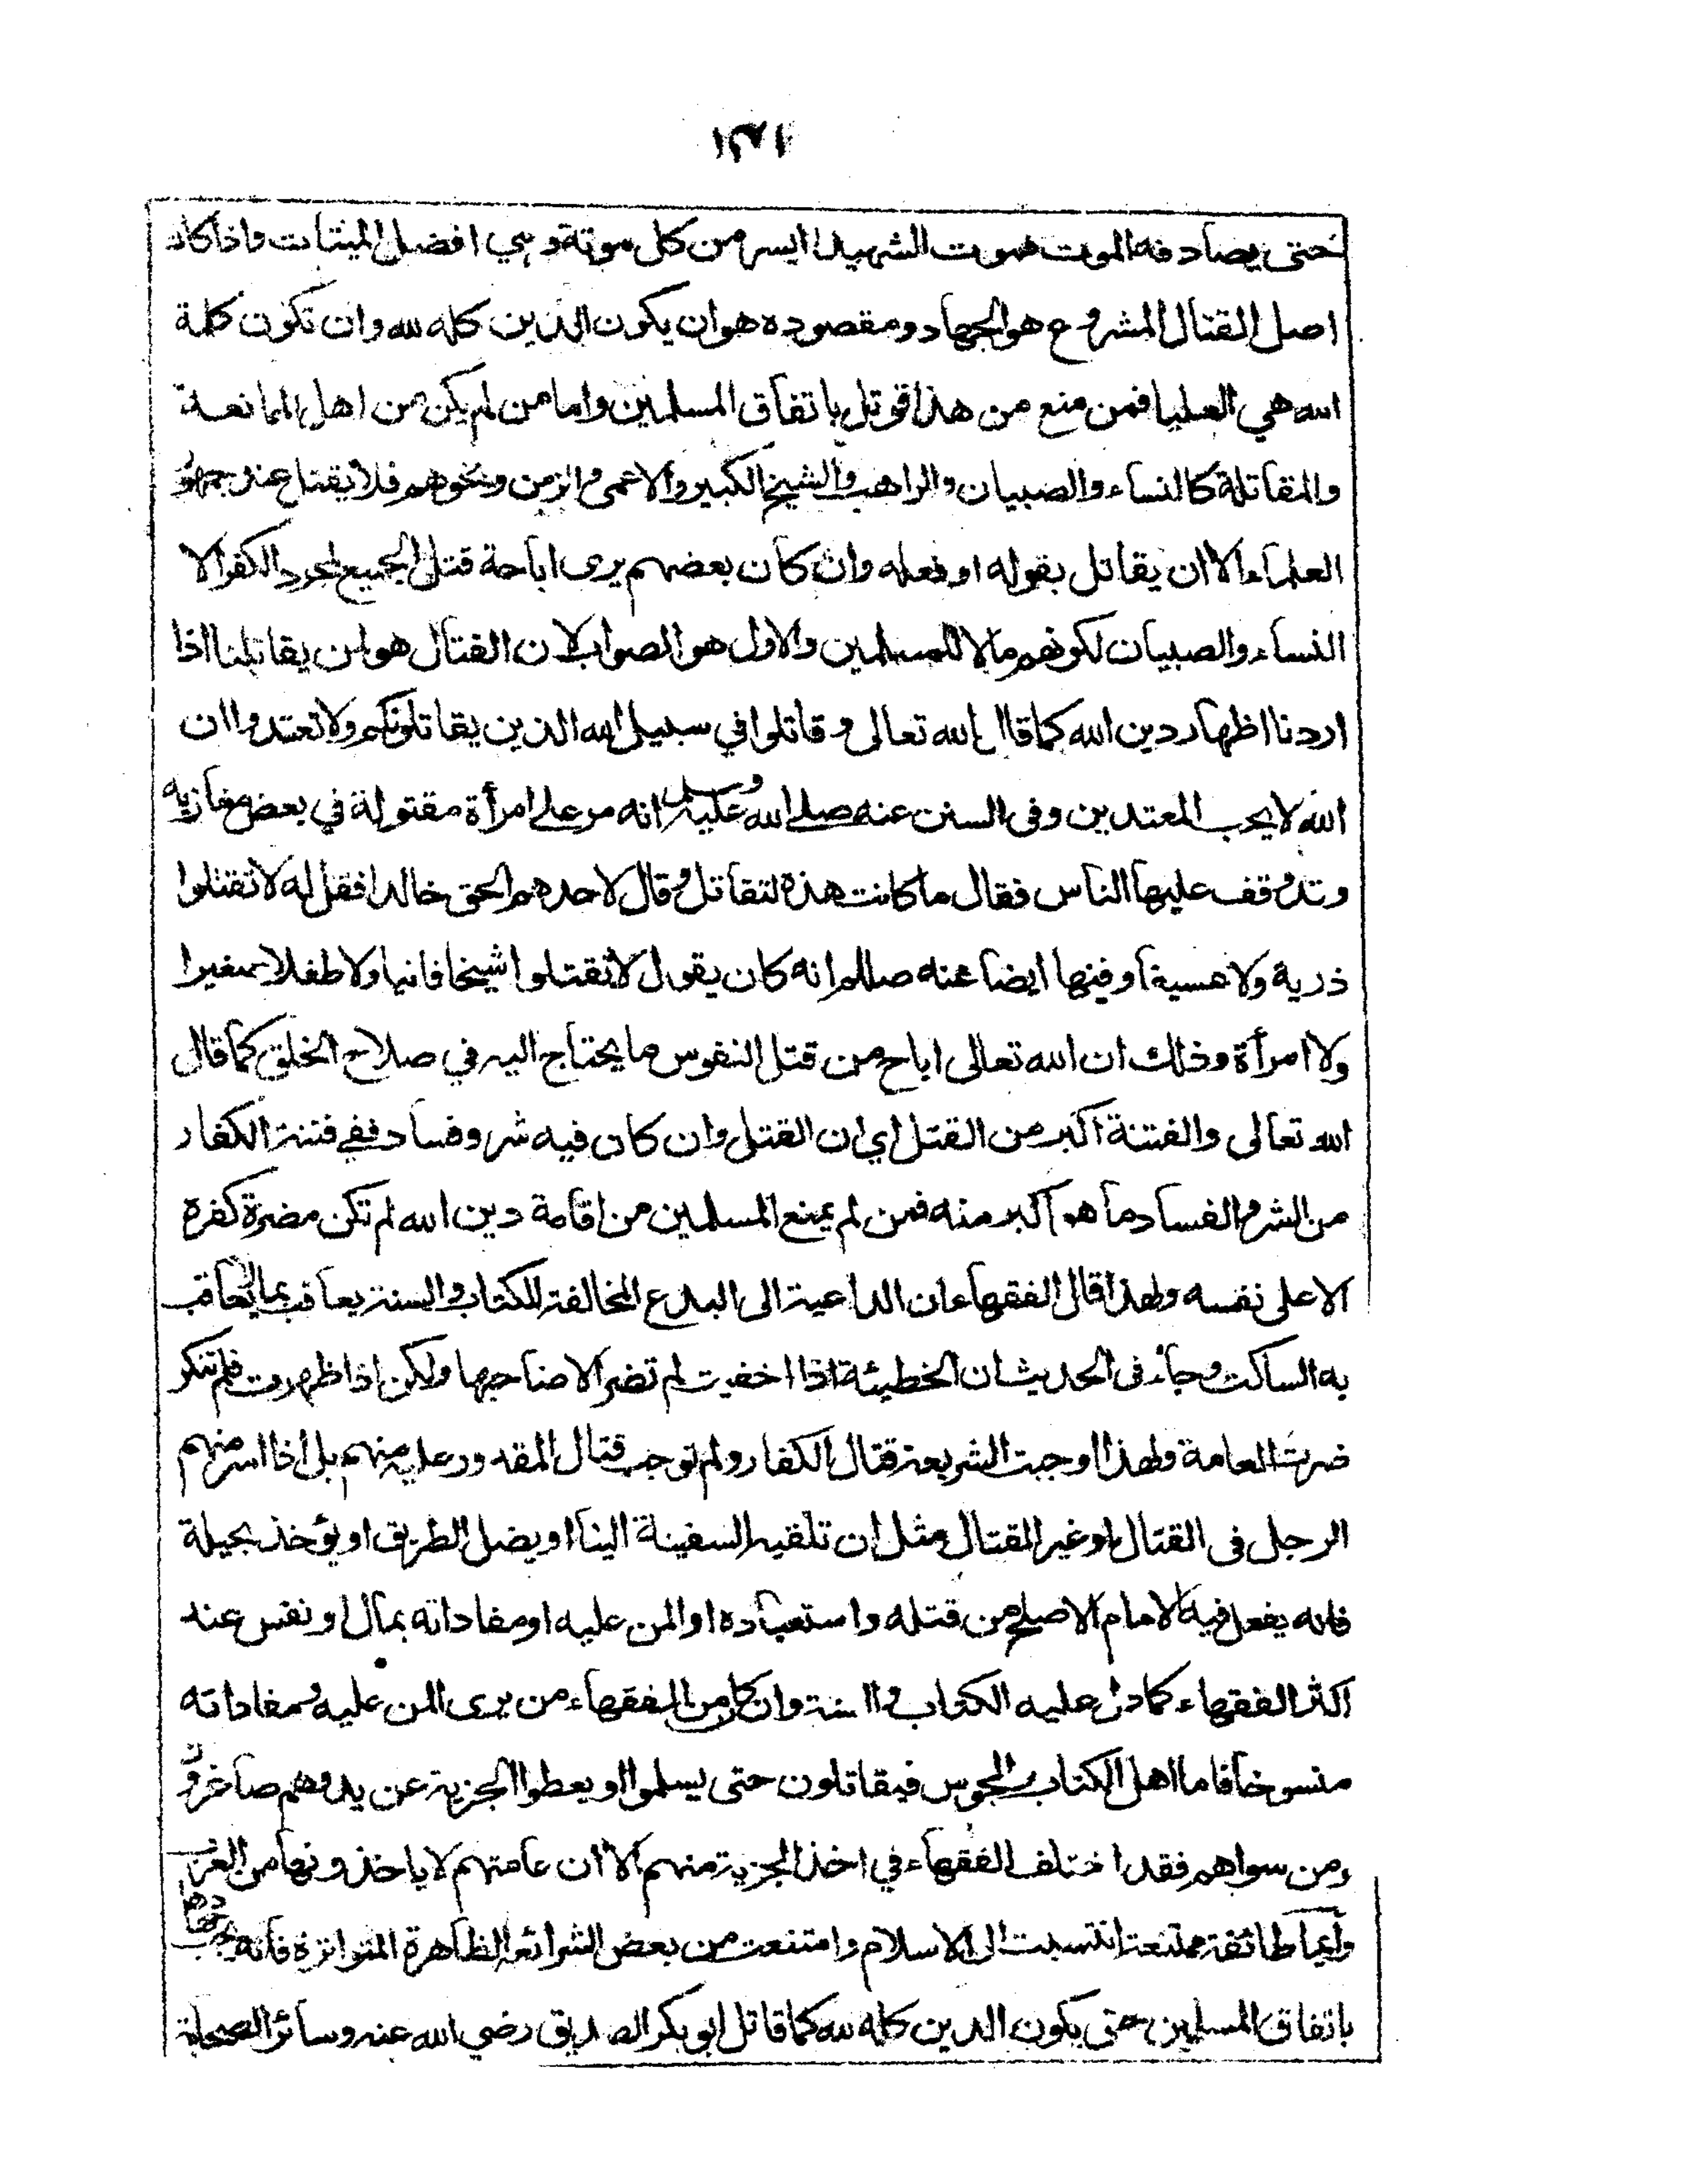 حتى يصادفه الموت فموت الشهيد ايسر من كل موتة وهي افضل الميتات واذا كان
اصل القتال المشروع هو الجهاد ومقصوده هو ان يكون الدين كله لله وان تكون كلمة
الله هي العليا فمن منع من هذا قوتل باتفاق المسلمين واما من لم يكن من اهل الممانعة
والمقاتلة كالنساء والصبيان والراهب والشيخ الكبير والاعمى والزمن ونحوهم فلا يقتل عند جمهور
العلماء الا ان يقاتل بقوله او فعله وان كان بعضهم يرى اباحة قتل الجميع لمجرد الكفر الا
النساء والصبيان لكونهم مالا للمسلمين والاول هو الصواب لان القتال هو لمن يقاتلنا اذا
اردنا اظهار دين الله كما قال الله تعالى وقاتلوا في سبيل الله الذين يقاتلونكم ولا تعتدوا ان
الله لا يحب المعتدين وفى السنن عنه صلى الله عليه وسلم انه مر على امرأة مقتولة في بعض مغازيه
وقد وقف عليها الناس فقال ما كانت هذه لتقاتل وقال لاحدهم الحق خالدا فقل له لا تقتلوا
ذرية ولا عسيفا وفيها ايضا عنه صللم انه كان يقول لا تقتلوا شيخا فانيا ولا طفلا صغيرا
ولا امرأة وذلك ان الله تعالى اباح من قتل النفوس ما يحتاج اليه في صلاح الخلق كما قال
الله تعالى والفتنة اكبر من القتل اي ان القتل وان كان فيه شر وفساد ففي فتنة الكفار
من الشر والفساد ما هو اكبر منه فمن لم يمنع المسلمين من اقامة دين الله لم تكن مضرة كفره
الا على نفسه ولهذا قال الفقهاء ان الداعية الى البدع المخالفة للكتاب والسنة يعاقب بما لا يعاقب
به الساكت وجاء فى الحديث ان الخطيئة اذا اخفيت لم تضر الا صاحبها ولكن اذا ظهرت فلم تنكر
ضرت العامة ولهذا اوجبت الشريعة قتال الكفار ولم توجب قتال المقدور عليه منهم بل اذا اسر منهم
الرجل فى القتال او غير القتال مثل ان تلقيه السفينة الينا او يضل الطريق او يؤخذ بحيلة
فانه يفعل فيه الامام الاصلح من قتله واستعباده او المن عليه او مفاداته بمال او نفس عند
اكثر الفقهاء كما دل عليه الكتاب والسنة وان كان من الفقهاء من يرى المن عليه ومفاداته
منسوخا فاما اهل الكتاب والمجوس فيقاتلون حتى يسلموا او يعطوا الجزية عن يد وهم صاغرون
ومن سواهم فقد اختلف الفقهاء في اخذ الجزية منهم الا ان عامتهم لا ياخذونها من العرب
وايما طائفة ممتنعة انتسبت الى الاسلام وامتنعت من بعض الشرائع الظاهرة المتواترة فانه يجب جهادها
باتفاق المسلمين حتى يكون الدين كله لله كما قاتل ابو بكر الصديق رضي الله عنه وسائر الصحابة